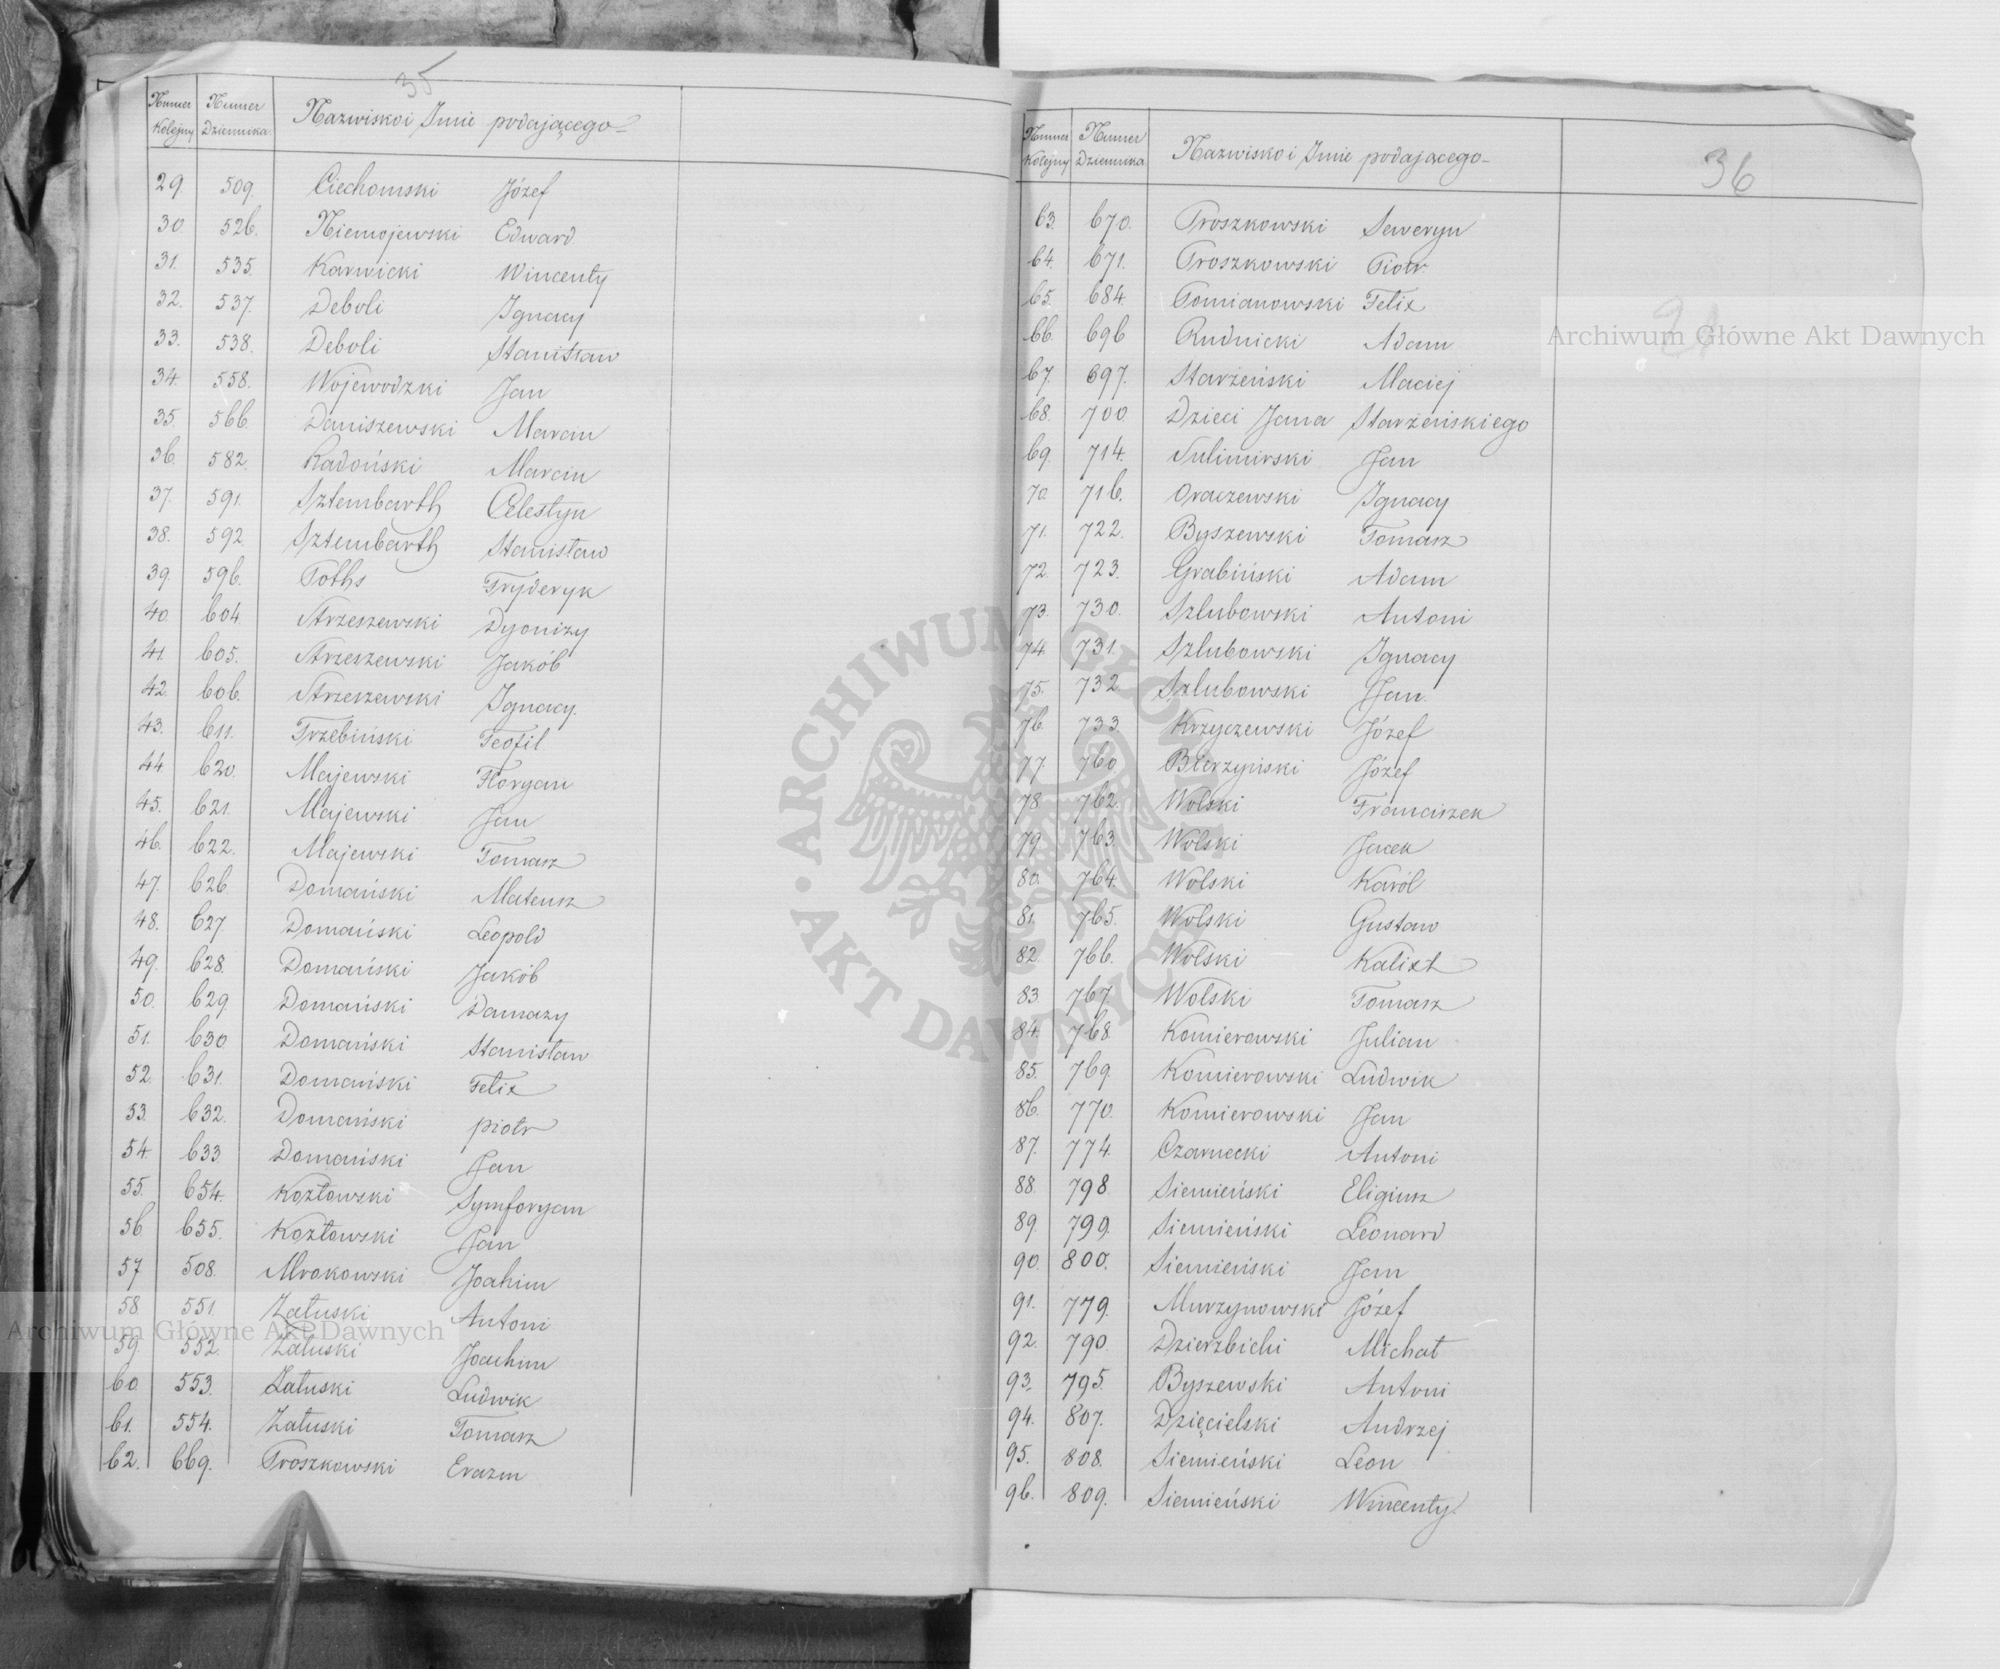 35
Numer Kolejny Numer Dziennika Nazwisko i Imie podającego
29. 509. Ciechomski Józef
30 526. Niemojewski Edward
31. 535. Karwicki Wincenty
32. 537. Deboli Ignacy
33. 538. Deboli Stanisław
34. 558. Wojewodzki Jan
35. 566. Daniszewski Marcin
36. 582. Radoński Marcin
37. 591. Sztembarth Celestyn
38. 592. Sztembarth Stanisław
39. 596. Poths Fryderyk
40. 604. Strzeszewski Dyonizy
41. 605. Strzeszewski Jakób
42. 606. Strzeszewski Ignacy.
43. 611. Trzebiński Teofil
44. 620. Majewski Floryan
45. 621. Majewski Jan
46. 622. Majewski Tomasz
47. 626. Domański Mateusz
48. 627. Domański Leopold
49. 628. Domański Jakób
50. 629. Domański Damazy
51. 630 Domański Stanisław
52. 631. Domański Felix
53. 632. Domański piotr
54. 633. Domański Jan
55. 654. Kozłowski Symforyan
56. 655. Kozłowski Jan
57 508. Mrokowski Joahim
58. 551. Załuski Antoni
59. 552. Załuski Joachim
60. 553. Załuski Ludwik
61. 554. Załuski Tomasz
62. 669. Proszkowski Erazm
36
Numer Kolejny Numer Dziennika Nazwisko i Imie podającego
63. 670. Proszkowski Seweryn
64. 671. Proszkowski Piotr
65. 684. Pomianowski Felix
66. 696 Rudnicki Adam
67. 697. Starżeński Maciej
68. 700 Dzieci Jana Starżeńskiego
69. 714. Sulimirski Jan
70. 716. Oraczewski Ignacy
71. 722. Byszewski Tomasz
72. 723. Grabiński Adam
73. 730. Szlubowski Antoni
74. 731. Szlubowski Ignacy
75. 732. Szlubowski Jan
76. 733. Krzyczewski Józef
77. 760. Bierzyński Józef
78. 762. Wolski Franciszek
79. 763. Wolski Jacek
80. 764. Wolski Karól
81. 765. Wolski Gustaw
82. 766. Wolski Kalixt
83. 767. Wolski Tomasz
84. 768 Komierowski Julian
85. 769 Komierowski Ludwik
86. 770. Komierowski Jan
87. 774. Czarnecki Antoni
88. 798. Siemieński Eligiusz
89 799. Siemieński Leonard
90. 800. Siemieński Jan
91. 779. Murzynowski Józef
92. 790. Dzierzbicki Michał
93. 795. Byszewski Antoni
94. 807. Dzięcielski Andrzej
95. 808. Siemieński Leon
96. 809. Siemieński Wincenty
Archiwum Główne Akt Dawnych
Archiwum Główne Akt Dawnych
ARCHIWUM GŁÓWNE AKT DAWNYCH